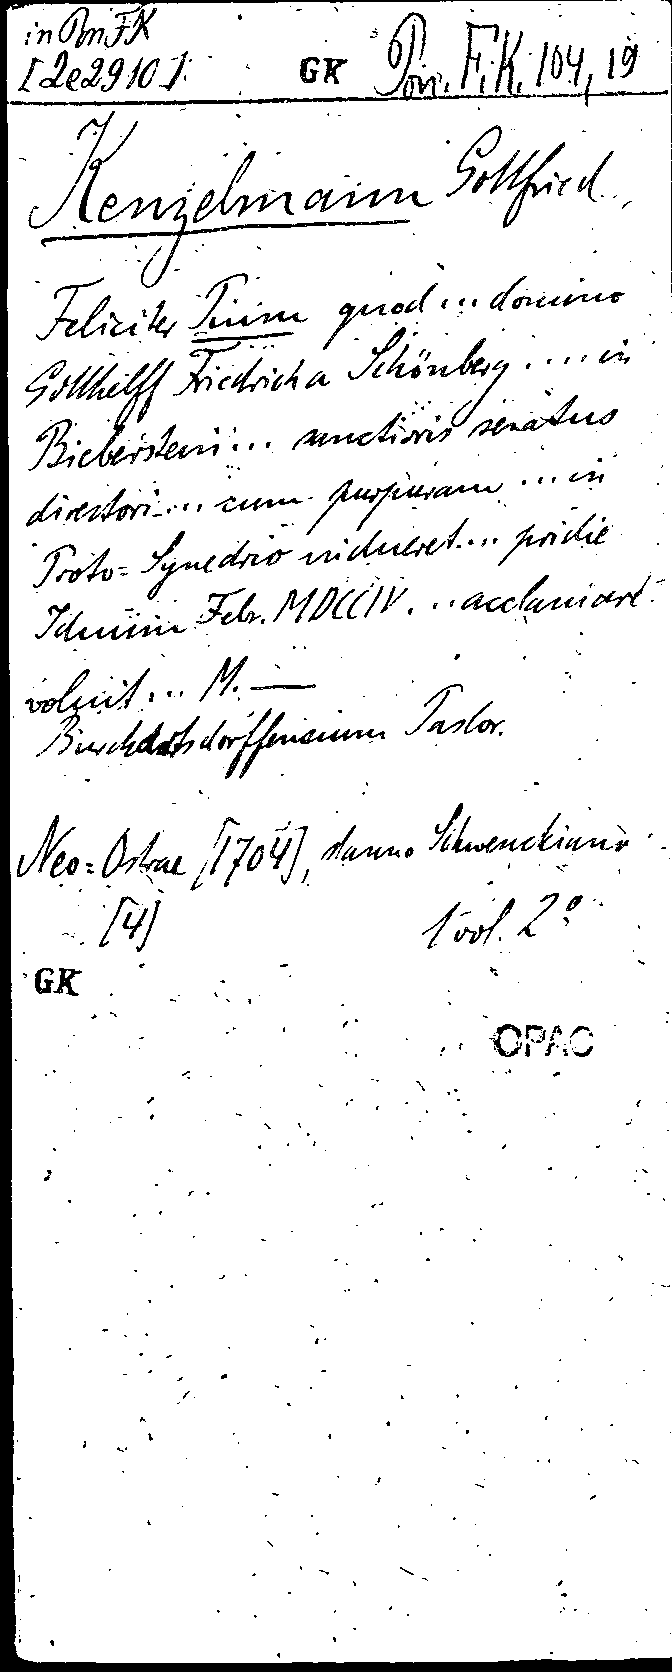 in Pon. F.K
[2e2910]: GK Pon. F.K. 104, 19
Kenzelmann Gottfried
Feliciter quod ... domino
Gotthelff Friedrich a Schönberg .... in
Biberstein ... sanctioris senatus
directori ... cum purpuram ... in
Proto=Synedrio indueret .... pridie
Iduum Febr. MDCCIV. ... acclamare
voluit ... M. —
Pastor.
Neo=Ostrae [1704], stanno Schwenckiano
[4] 1 vol. 2°
GK
OPAC